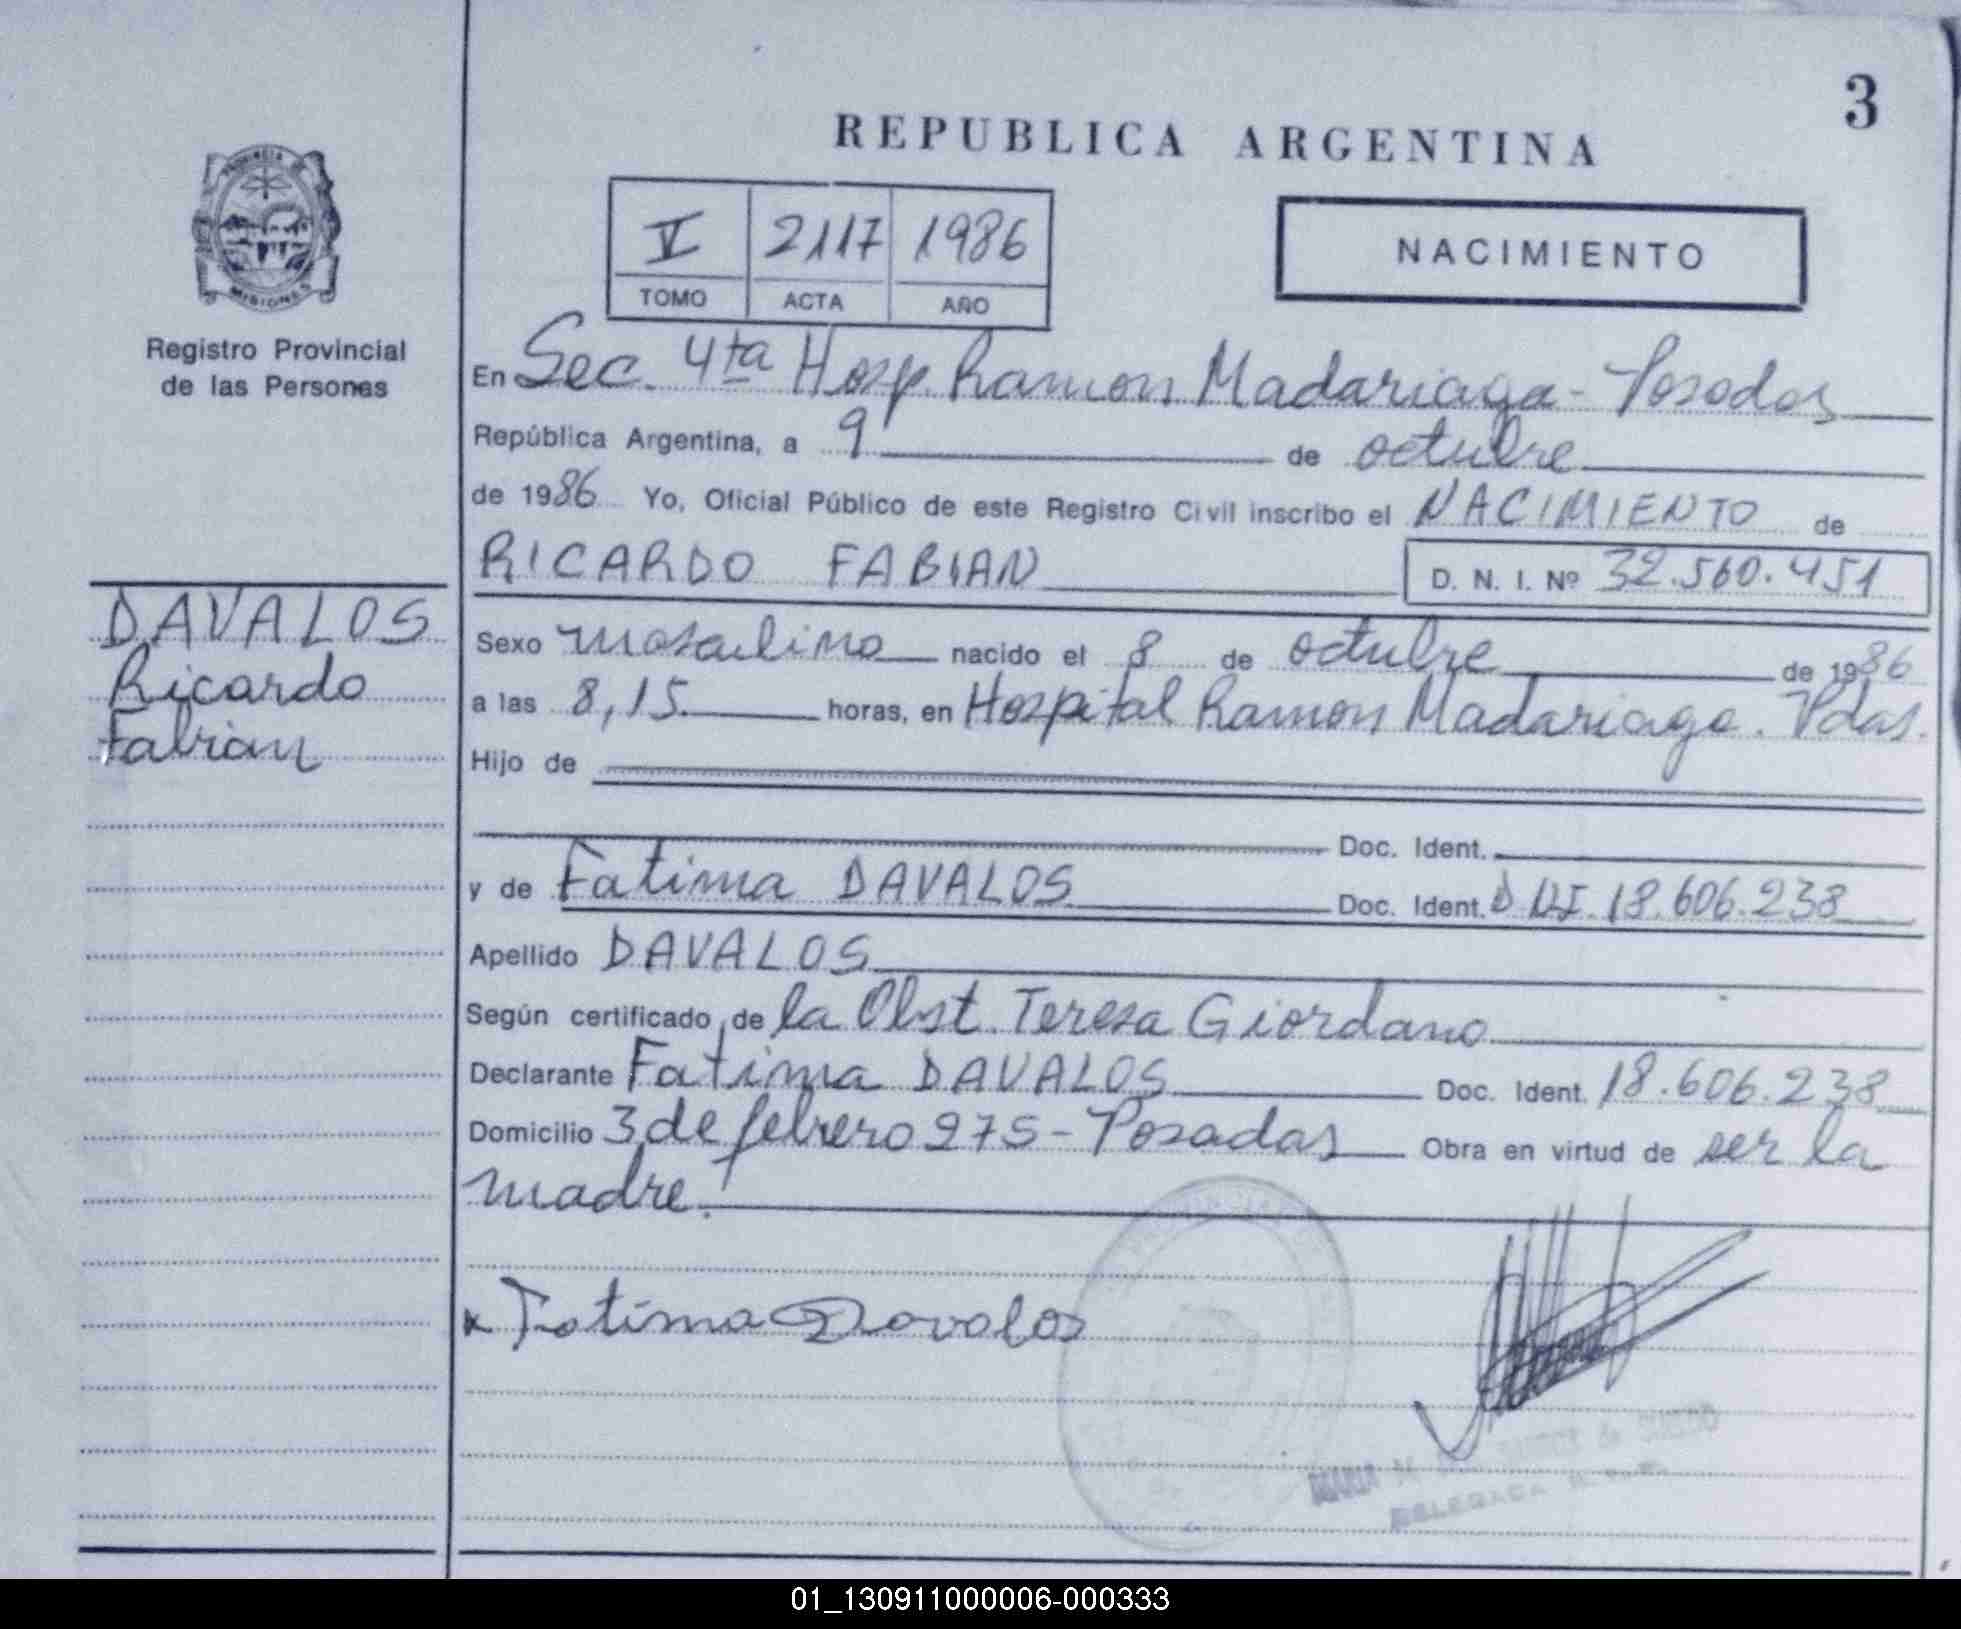 3
REPUBLICA ARGENTINA
PROVINCIA DE
MISIONES
Registro Provincial
de las Persones
V 2117 1986
TOMO ACTA AÑO
NACIMIENTO
En Sec. 4ta Hosp. Ramon Madariaga - Posadas
República Argentina, a 9 de octubre
de 1986 Yo, Oficial Público de este Registro Civil inscribo el NACIMIENTO de
RICARDO FABIAN D. N. I. Nº 32.560.451
DAVALOS
Ricardo
Fabian
Sexo masculino nacido el 8 de octubre de 1986
a las 8,15 horas, en Hospital Ramon Madariaga. Pdas.
Hijo de
Doc. Ident.
y de Fatima DAVALOS Doc. Ident. D.N.I. 18.606.238
Apellido DAVALOS
Según certificado de la Obst. Teresa Giordano
Declarante Fatima DAVALOS Doc. Ident. 18.606.238
Domicilio 3 de febrero 275 - Posadas Obra en virtud de ser la
madre.
x Fatima Davalos
MARIA
DELEGADA
01_130911000006-000333